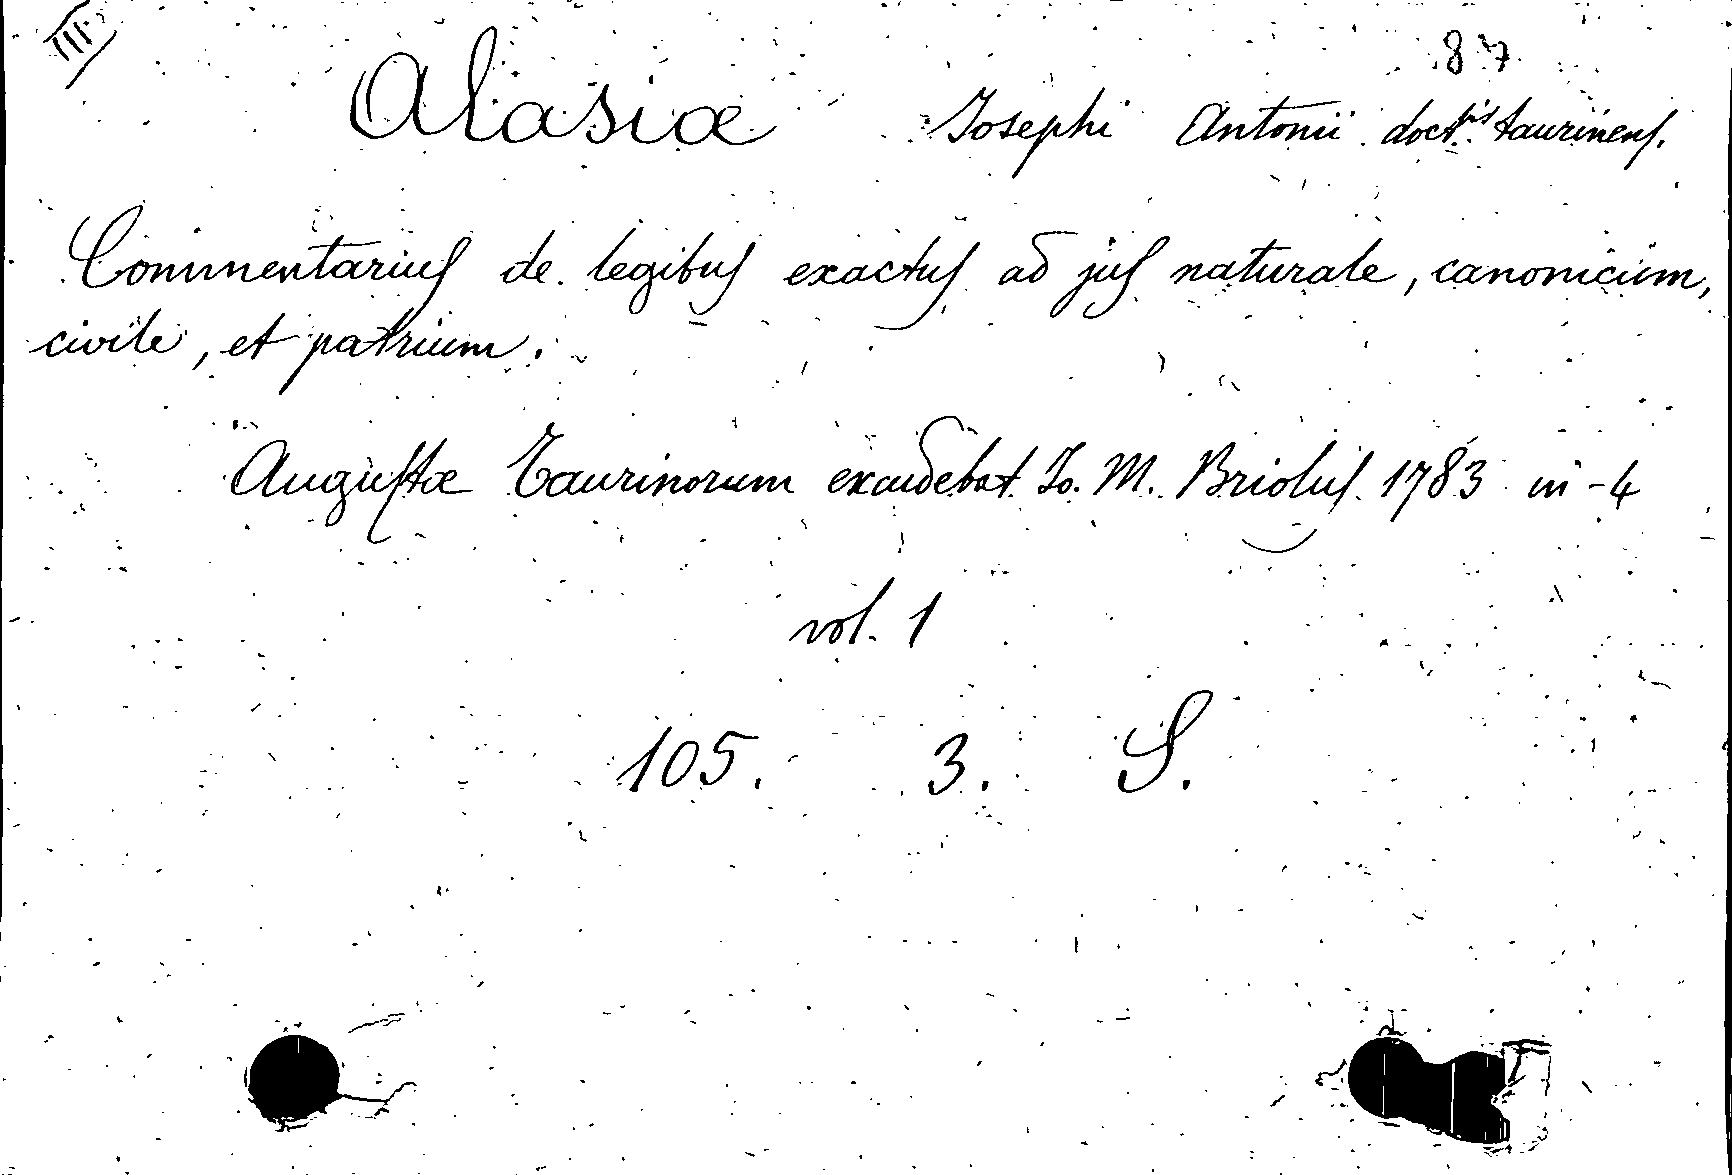 III.
87
Alasiæ Josephi Antonii doct.ris taurinens.
Commentarius de legibus exactus ad jus naturale, canonicum,
civile, et patrium.
Augustæ Taurinorum excudebat Jo. M. Briolus 1783 in-4
vol. 1
105. 3. S.